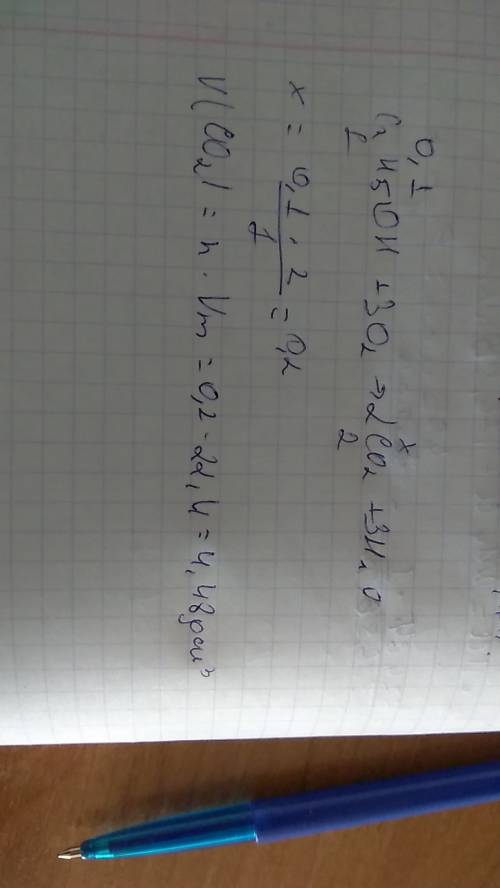 0,1 x
C₂H₅OH + 3O₂ → 2CO₂ + 3H₂O
1 2
x = 0,1 · 2 / 1 = 0,2
V(CO₂) = n · Vm = 0,2 · 22,4 = 4,48 дм³